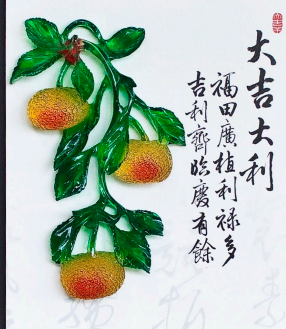 大吉大利
福田廣植利祿多
吉利齊臨慶有餘